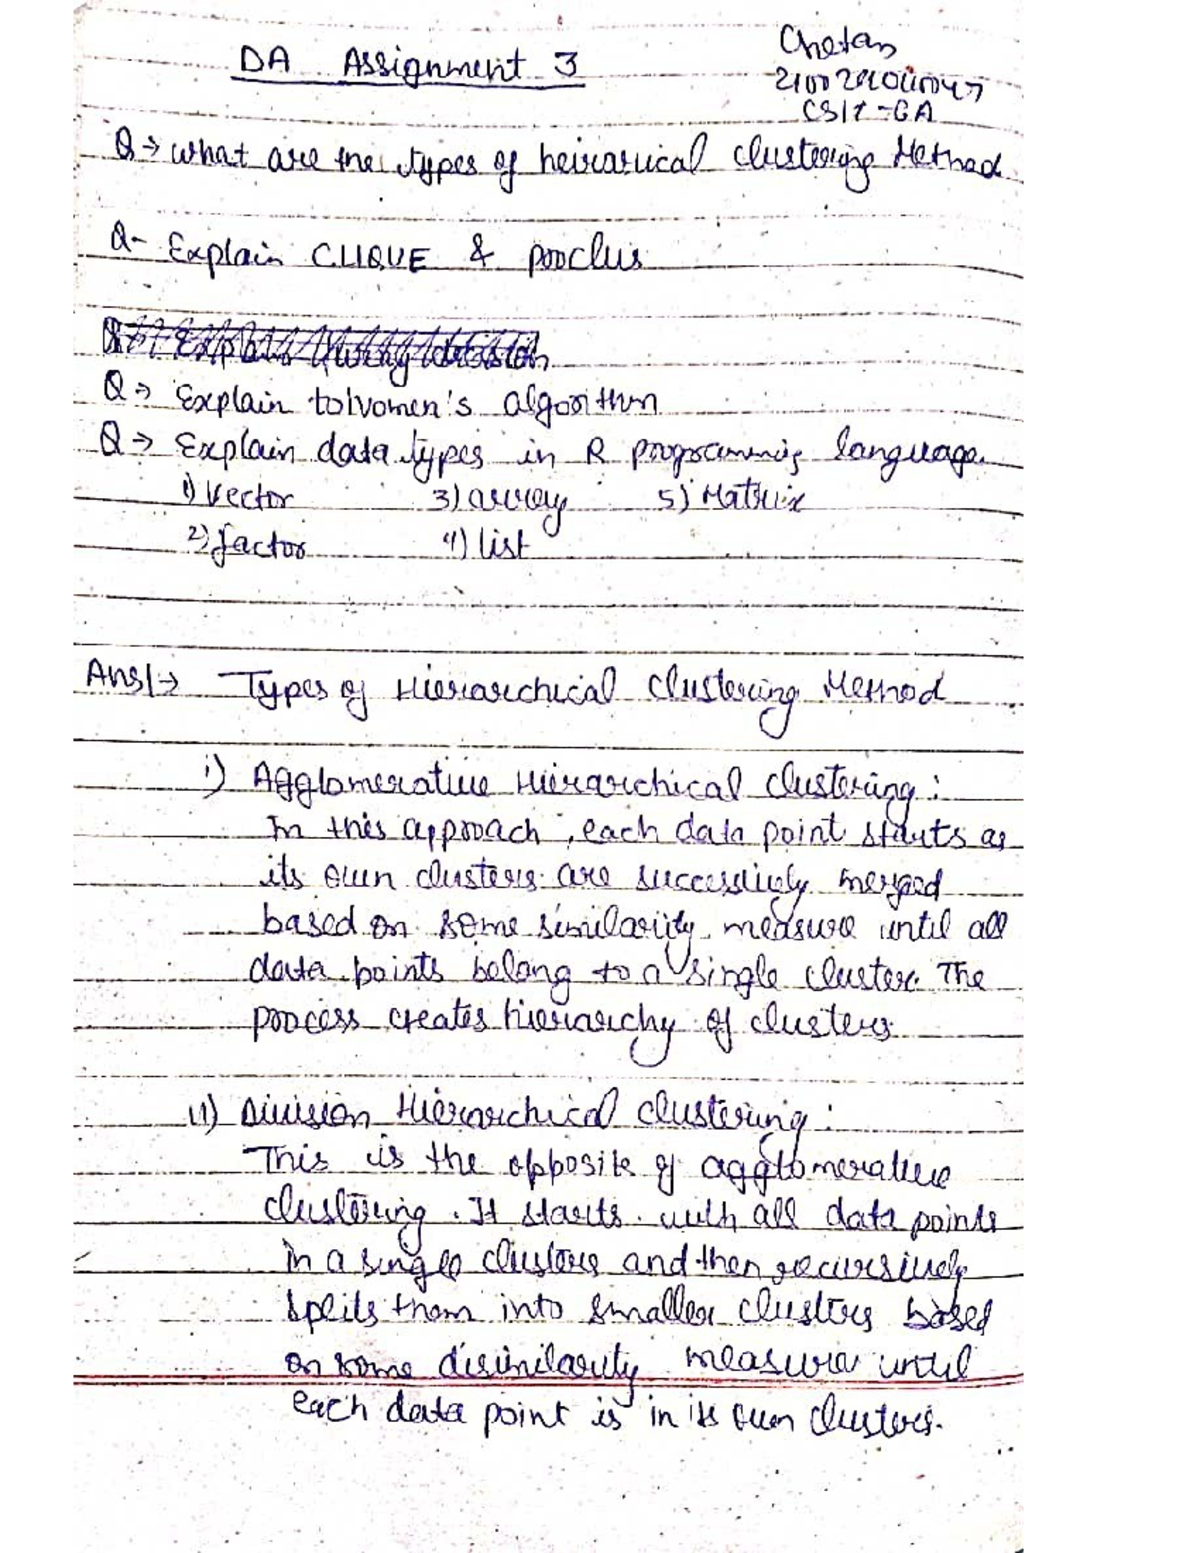 DA Assignment 3
Chetan
CS/IT-6A
Q→ what are the types of heirarucal clustering Method
Q- Explain CLIQUE & proclus
Q→ Explain tolvomen's algorithm
Q→ Explain data types in R programming language.
1) Vector 3) array 5) Matrix
2) factor 4) list
Ans1→ Types of Hierarchical Clustering Method
i) Agglomerative Hierarchical clustering:
In this approach, each data point starts as
its own clusters are successively merged
based on some similarity measure until all
data points belong to a single cluster. The
process creates hierarchy of clusters
ii) Division Hierarchical clustering:
This is the opposite of agglomerative
clustering. It starts with all data points
in a single clusters and then recursively
splits them into smaller clusters based
on some disimilarity measure until
each data point is in its own clusters.